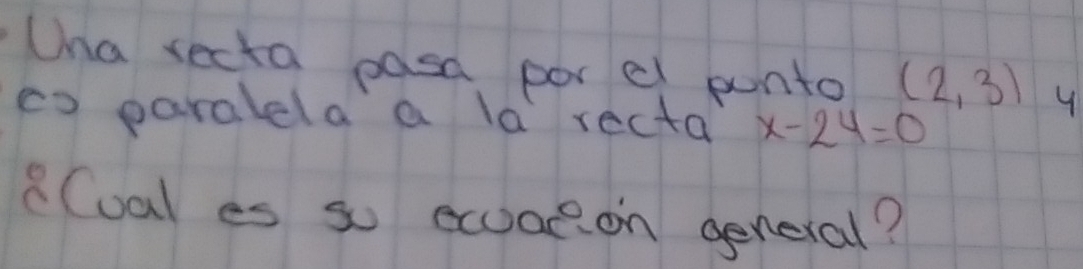 Una recta pasa por el punto (2,3) y
es paralela a la recta x-2y=0
¿Cual es su ecuación general?